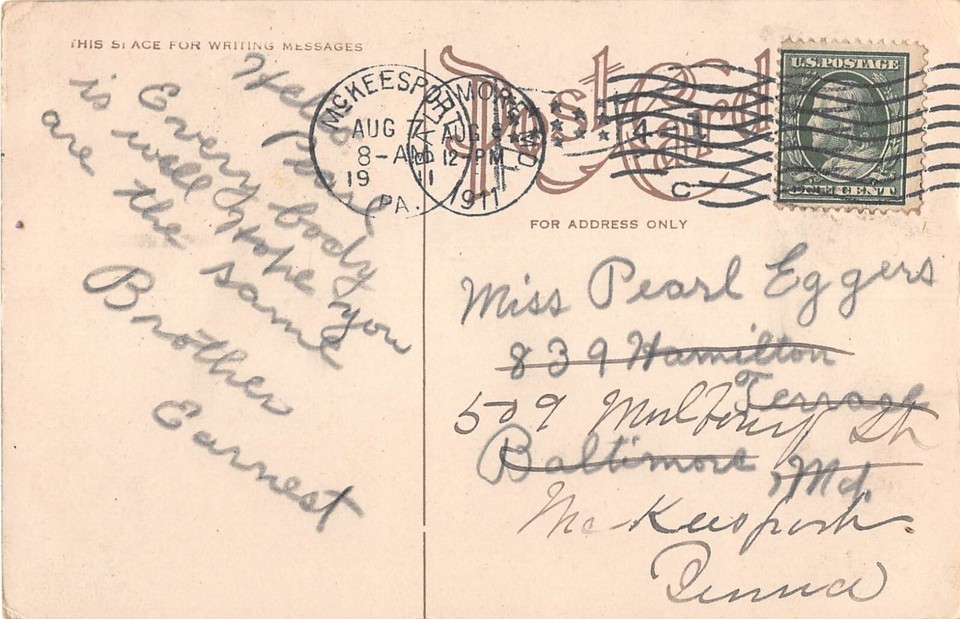 THIS SPACE FOR WRITING MESSAGES
Hello
Pearl
Every body
is well Hope you
are the same
Brother
Earnest
Post Card
McKEESPORT
AUG 7
8-AM
19 11
PA.
BALTIMORE, MD.
AUG 8
12-PM
1911
C
U.S. POSTAGE
ONE CENT
FOR ADDRESS ONLY
Miss Pearl Eggers
839 Hamilton
Terrace
509 Mulberry St
Baltimore Md.
McKeesport
Penna